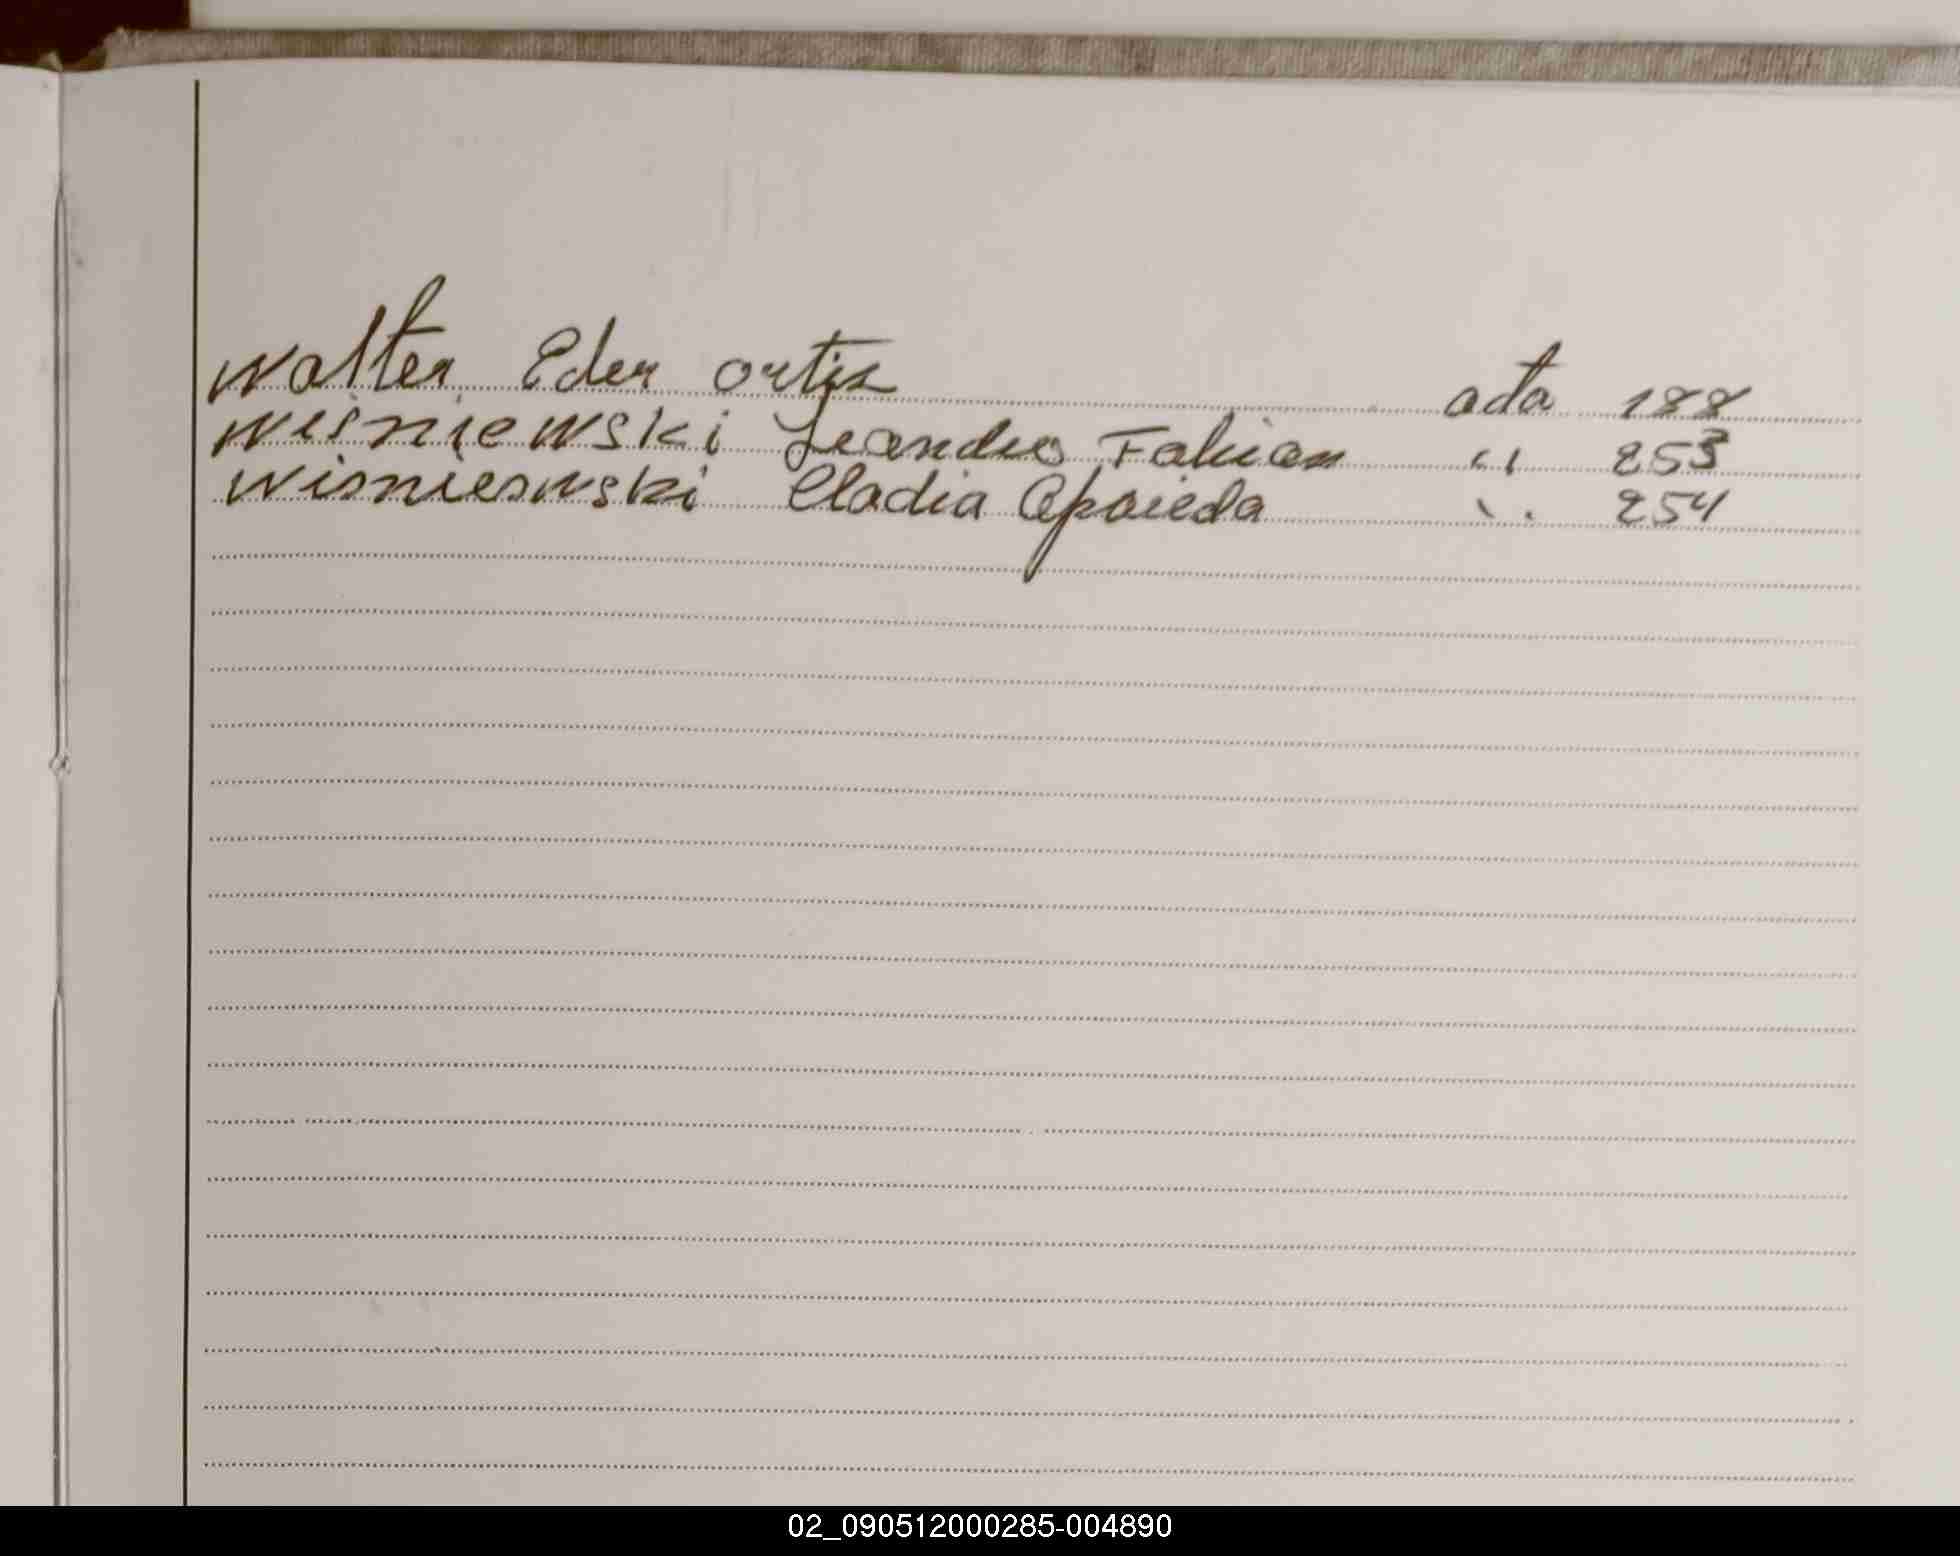 Walter Eder Ortiz ata 188
Wisniewski Leandro Fabian " 253
Wisniewski Cladia Aparieda " 254
02_090512000285-004890